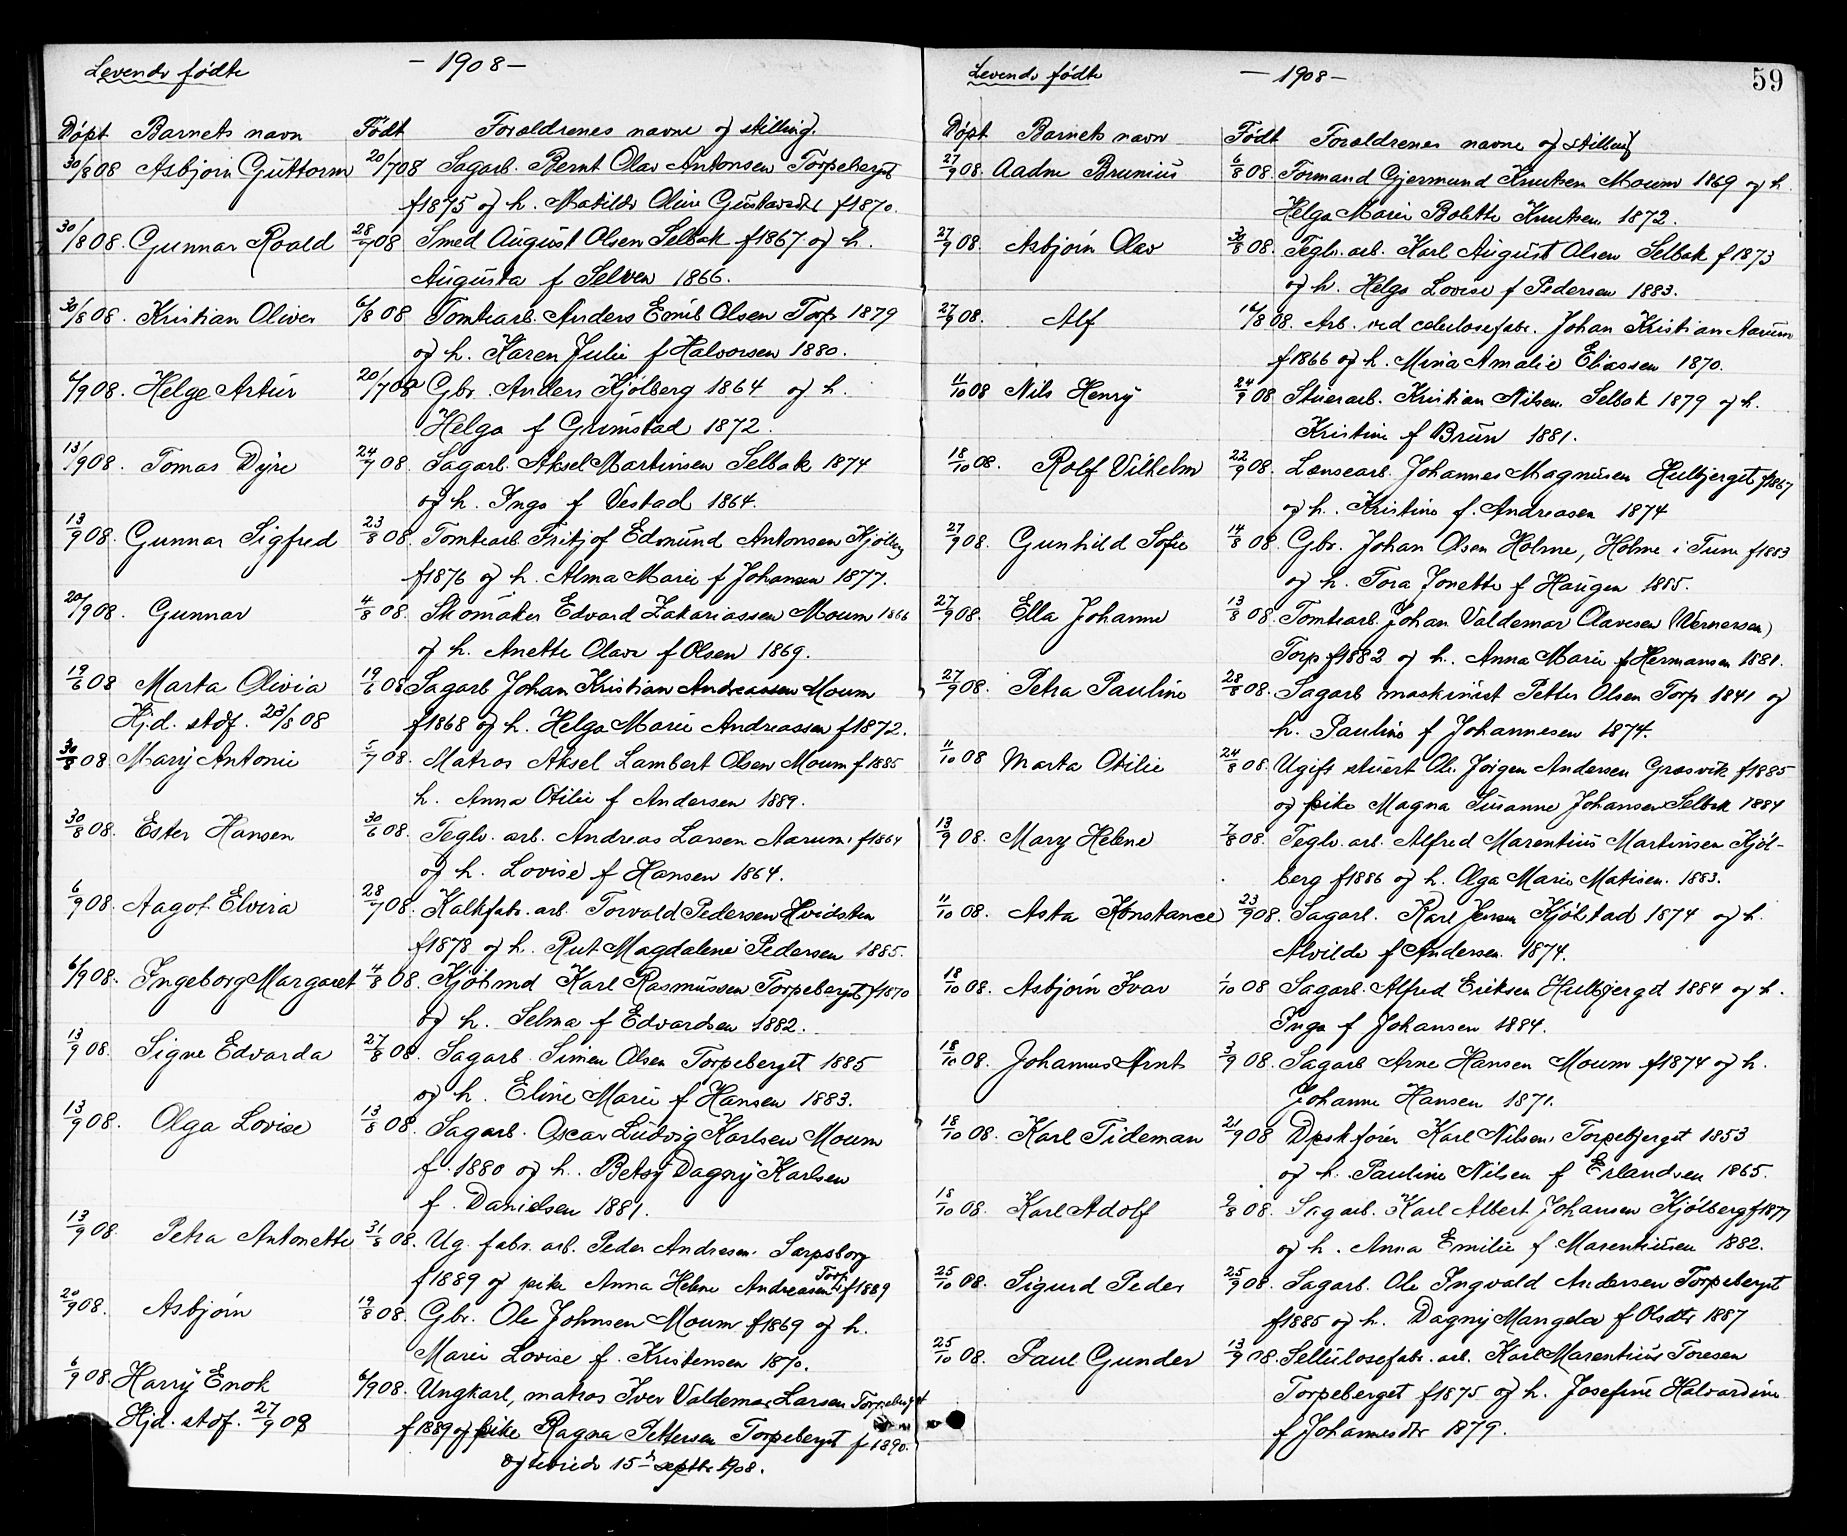 Levende fødte - 1908 -
Döpt Barnets navn Født Foraldrenes navne og stilling.
30/8 08 Asbjørn Guttorm 20/7 08 Sagarb. Bernt Olav Antonsen Torpeberget
f 1875 og h. Matilde Oline Gustavsdtr f 1870.
30/8 08. Gunnar Roald 28/7 08 Smed August Olsen Selbak f 1867 og h.
Augusta f Selven 1866.
30/8 08. Kristian Oliver 6/8 08 Tomtearb. Anders Emil Olsen Torp 1879
og h. Karen Julie f Halvorsen 1880.
6/9 08. Helge Artur 20/7 08 Gbr. Anders Kjølberg 1864 og h.
Helga f Grimstad 1872.
13/9 08. Tomas Dyre 24/7 08. Sagarb. Aksel Martinsen Selbak 1874
og h. Inga f Vestad 1864.
13/9 08. Gunnar Sigfred 23/8 08. Tomtearb. Fritjof Edmund Antonsen Kjølberg
f 1876 og h. Alma Marie f Johansen 1877.
20/9 08. Gunnar 4/8 08. Skomaker Edvard Zakariassen Moum 1866
og h. Anette Olava f Olsen 1869.
19/6 08 Marta Olivia 19/6 08 Sagarb Johan Kristian Andreassen Moum
Hj.d. stdf. 23/8 08 f 1868 og h. Helga Marie Andreassen f 1872.
30/8 08 Mary Antonie 5/7 08. Matros Aksel Lambert Olsen Moum f 1885
h. Anna Otilie f Andersen 1889.
30/8 08. Ester Hansen 30/6 08. Teglv. arb. Andreas Larsen Aarum. f 1864
og h. Lovise f Hansen 1864.
6/9 08. Aagot Elvira 28/7 08. Kalkfabr. arb. Torvald Pedersen Hvidsten
f 1878 og h. Rut Magdalene Pedersen 1885.
6/9 08. Ingeborg Margaret 4/8 08. Kjøtmd Karl Rasmussen Torpeberget f 1870
og h. Selma f Edvardsen 1882.
13/9 08. Signe Edvarda 27/8 08. Sagarb. Simen Olsen Torpeberget 1885
og h. Eline Marie f Hansen 1883.
13/9 08. Olga Lovise 13/8 08. Sagarb. Oscar Ludvig Karlsen Moum
f. 1880 og h. Betsy Dagny Karlsen
f. Danielsen 1881.
13/9 08. Petra Antonette 31/8 08. Ug. fabr. arb. Peder Andresen. Sarpsborg
f 1889 og pike Anna Helene Andreasen Torp f 1889
20/9 08. Asbjørn 19/8 08. Gbr. Ole Johnsen Moum f 1869 og h.
Marie Lovise f. Kristensen 1870.
6/9 08. Harry Enok 6/9 08. Ungkarl, matros Iver Valdemar Larsen Torpeberget
Hjd. stdf. 27/9 08 f 1889 og pike Ragna Pettersen Torpeberget f 1890.
15 septbr 1908.
Levende fødte - 1908 - 59
Döpt Barnets navn Født Foraldrenes navne og stilling
27/9 08. Aadne Brunius 6/8 08. Formand Gjermund Knutsen Moum 1869 og h.
Helga Marie Bolette Knutsen 1872.
27/9 08. Asbjørn Olav 08. Teglv. arb. Karl August Olsen Selbak f 1873
og h. Helga Lovise f Pedersen 1883.
27/9 08. Alf 16/8 08. Arb. ved celulosefabr. Johan Kristian Aarum
f 1866 og h. Mina Amalie Eliassen 1870.
11/10 08 Nils Henry 24/9 08 Stuerarb. Kristian Nilsen. Selbak 1879 og h.
Kristine f Brun 1881.
18/10 08. Rolf Vilhelm 22/9 08. Lænsearb. Johannes Magnusen Hulbjerget f 1867
og h. Kristine f. Andreasen 1874
27/9 08. Gunhild Sofie 14/8 08. Gbr. Johan Olsen Holme, Holme i Tune f 1883
og h. Tora Jonette f Haugen 1885.
27/9 08. Ella Johanne 13/8 08. Tomtearb. Johan Valdemar Olavesen (Wernersen)
Torp f 1882 og h. Anna Marie f Hermansen 1881.
27/9 08. Petra Pauline 28/8 08. Sagarb maskinist Petter Olsen Torp 1841 og
h. Pauline f Johannesen 1874.
11/10 08 Marta Otilie 24/8 08. Ugift stuert Ole Jørgen Andersen Græsvik f 1885
og pike Magna Susanne Johansen Selbak 1884
13/9 08. Mary Helene 7/8 08. Teglv. arb. Alfred Marentius Martinsen Kjöl-
berg f 1886 og h. Olga Marie Matisen. 1883.
11/10 08. Asta Konstance 23/9 08. Sagarb. Karl Jensen Kjølstad 1874 og h.
Alvilde f Andersen. 1874.
18/10 08. Asbjørn Ivar 1/10 08 Sagarb. Alfred Eriksen Hulbjergd 1884 og h.
Inga f Johansen 1884.
18/10 08. Johannes Arnt 3/9 08. Sagarb Arne Hansen Moum f 1874 og h.
Johanne Hansen 1871.
18/10 08. Karl Tideman 21/9 08 Dpskfører Karl Nilsen, Torpebjerget 1853
og h. Pauline Nilsen f Erlandsen 1865.
18/10 08. Karl Adolf 9/8 08. Sagarb. Karl Albert Johansen Kjølberg f 1877
og h. Anna Emilie f Marentiusen 1882.
25/10 08. Sigurd Peder 25/9 08. Sagarb. Ole Ingvald Andersen Torpeberget
f 1885 og h. Dagny Mangela f Olsdtr 1887
25/10 08. Paul Gunder 13/9 08. Sellulosefabr. arb. Karl Marentius Toresen
Torpeberget f 1875 og h. Josefine Halvardine
f Johannesdtr 1879.